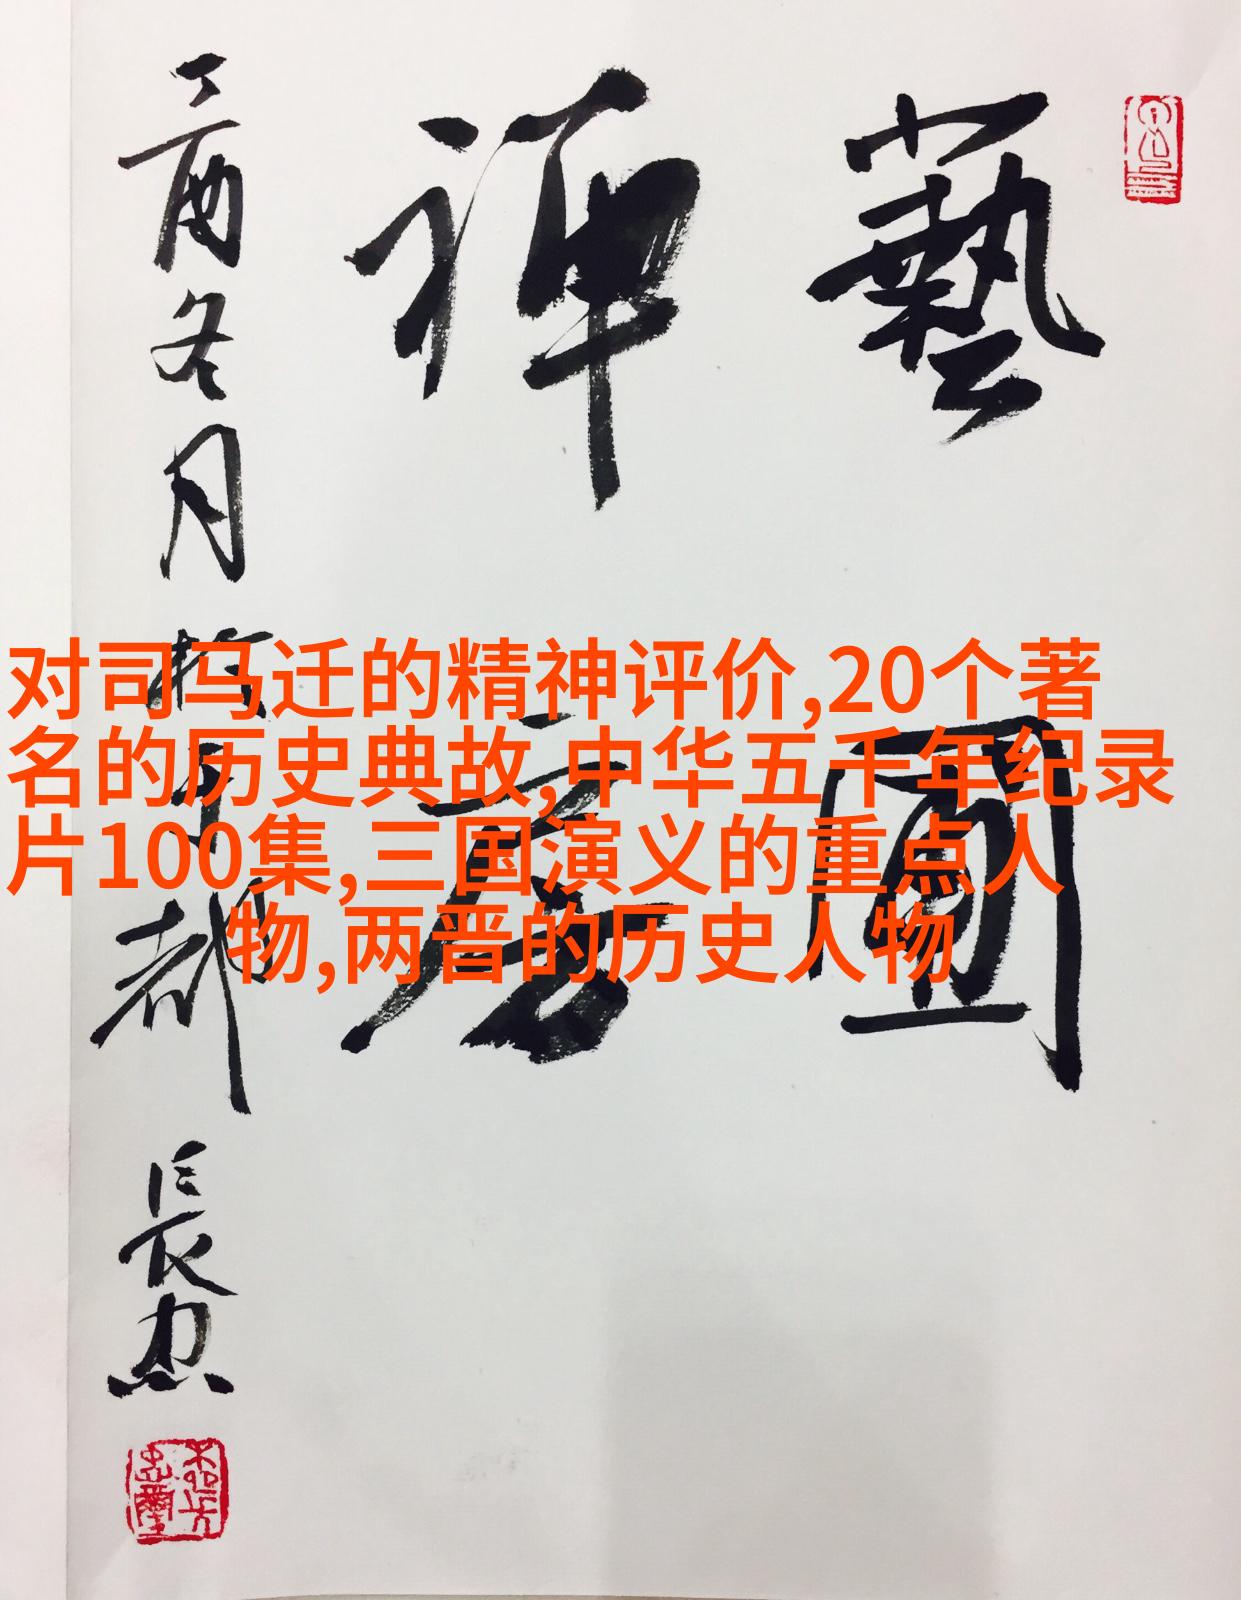 藝
禪
丁酉冬月 都 長
对司马迁的精神评价,20个著
名的历史典故,中华五千年纪录
片100集,三国演义的重点人
物,两晋的历史人物